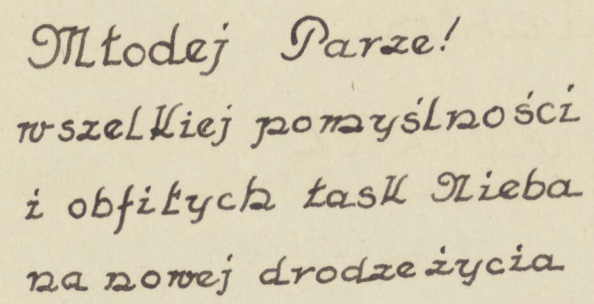 Młodej Parze!
wszelkiej pomyślności
i obfitych łask Nieba
na nowej drodze życia